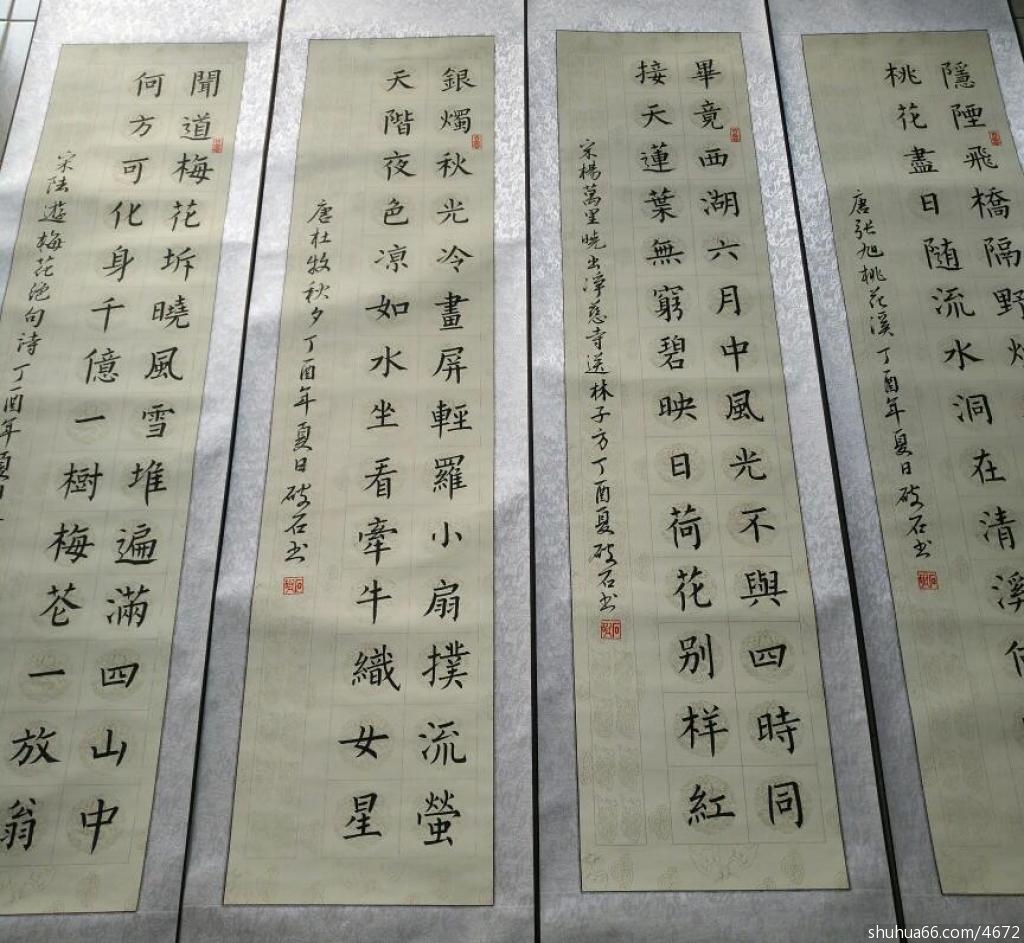 隱陻飛橋隔野
桃花盡日随流水洞在清溪
唐张旭桃花溪 丁酉年夏日破石书
畢竟西湖六月中風光不與四時同
接天蓮葉無窮碧映日荷花别样紅
宋楊萬里晓出淨慈寺送林子方丁酉夏破石书
銀燭秋光冷畫屏輕羅小扇撲流螢
天階夜色凉如水坐看牽牛織女星
唐杜牧秋夕丁酉年夏日破石书
聞道梅花坼曉風雪堆遍滿四山中
何方可化身千億一樹梅花一放翁
宋陆遊梅花绝句诗丁酉年夏日
shuhua66.com/4672